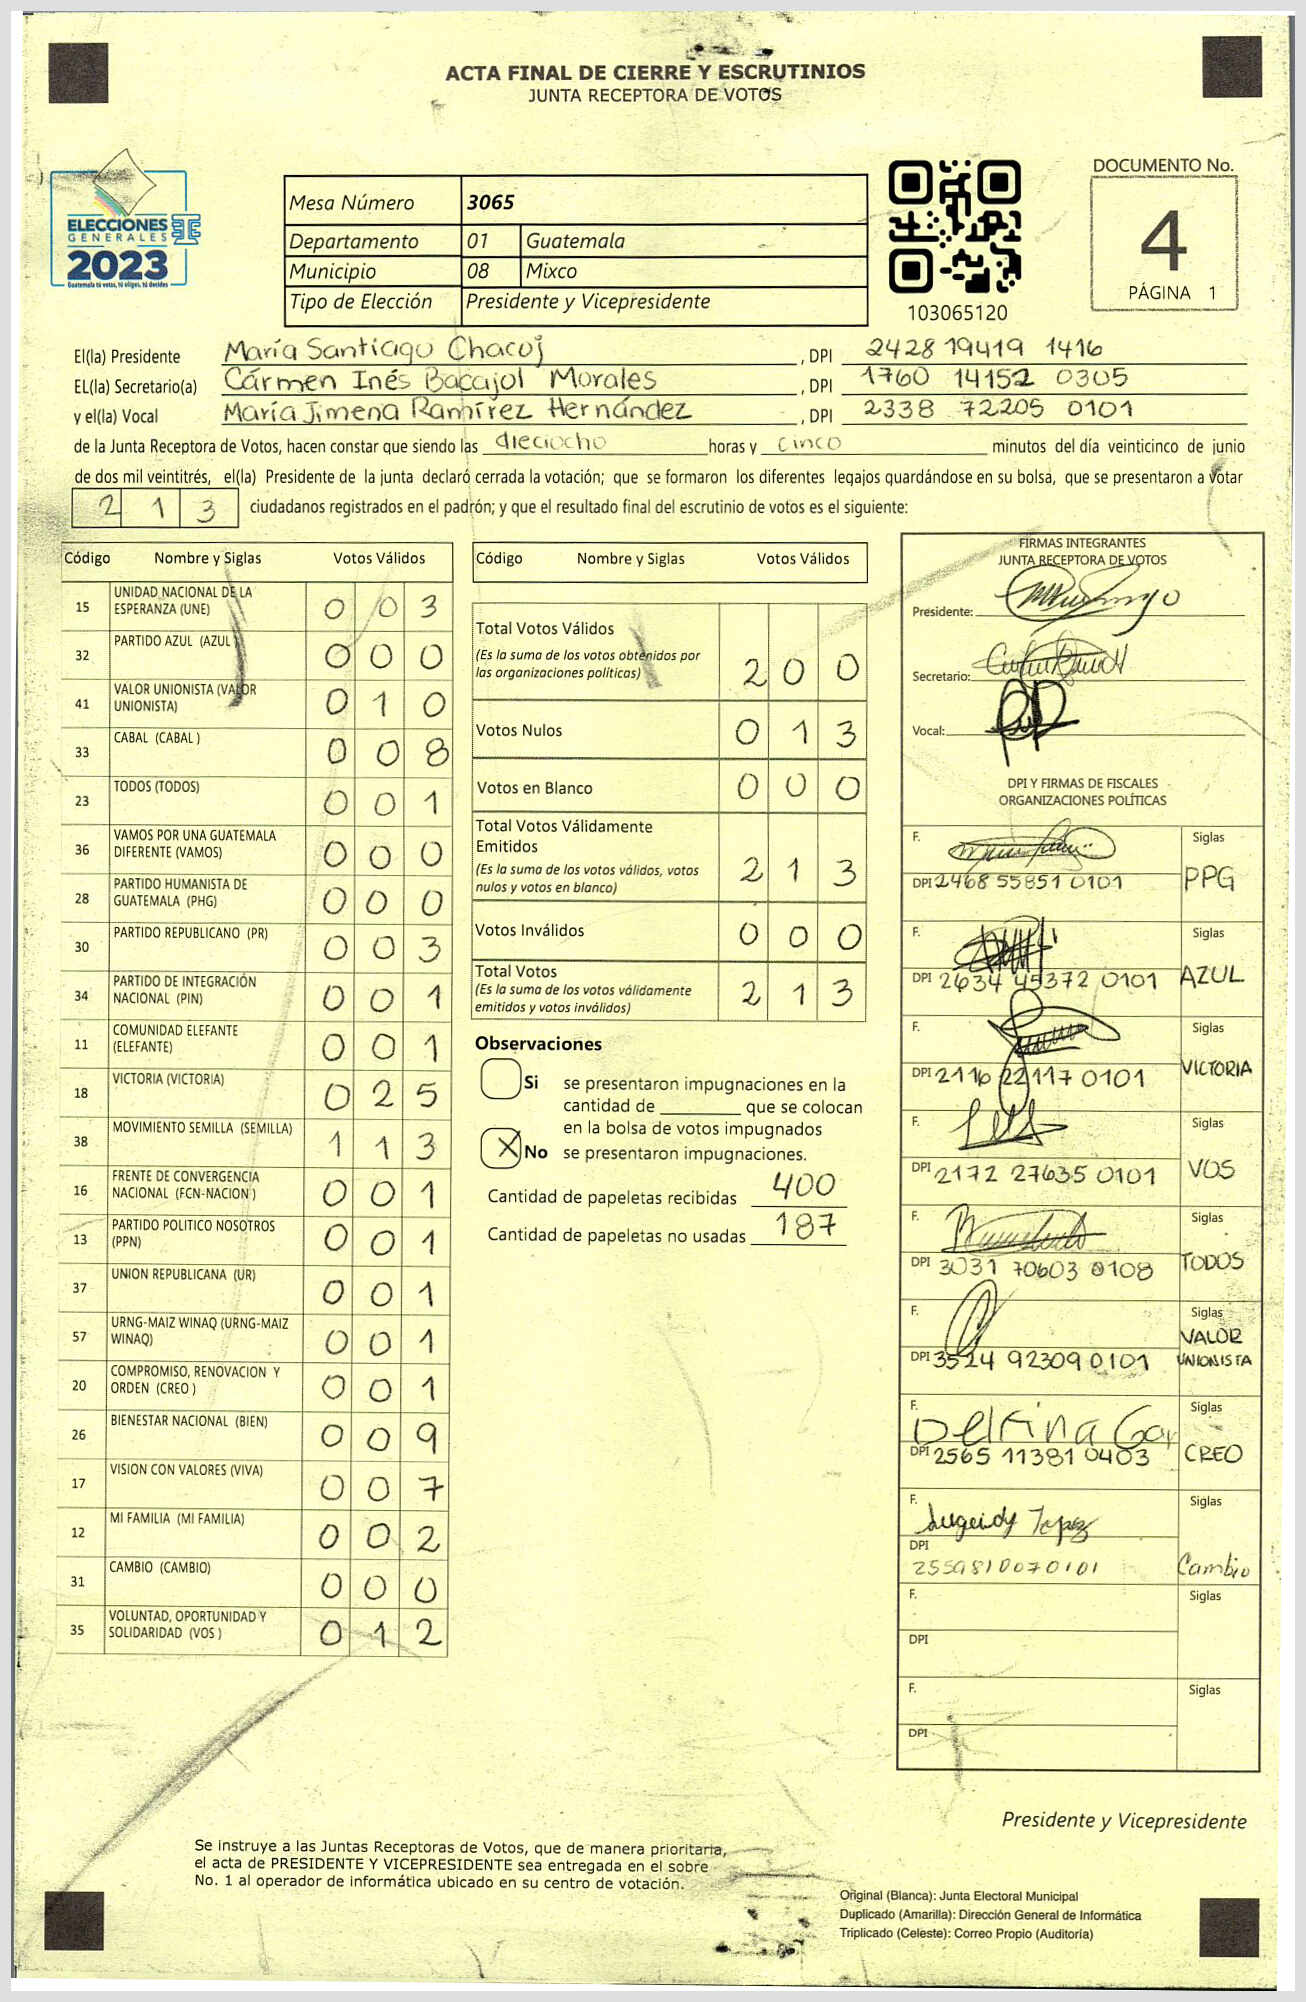 ACTA FINAL DE CIERRE Y ESCRUTINIOS
JUNTA RECEPTORA DE VOTOS
ELECCIONES
GENERALES
2023
Guatemala tú votas, tú eliges, tú decides
Mesa Número 3065
Departamento 01 Guatemala
Municipio 08 Mixco
Tipo de Elección Presidente y Vicepresidente
103065120
DOCUMENTO No.
4
PÁGINA 1
El(la) Presidente María Santiago Chacoj , DPI 2428 19419 1416
EL(la) Secretario(a) Cármen Inés Bacajol Morales , DPI 1760 14152 0305
y el(la) Vocal María Jimena Ramírez Hernández , DPI 2338 72205 0101
de la Junta Receptora de Votos, hacen constar que siendo las dieciocho horas y cinco minutos del día veinticinco de junio
de dos mil veintitrés, el(la) Presidente de la junta declaró cerrada la votación; que se formaron los diferentes legajos guardándose en su bolsa, que se presentaron a votar
2 1 3 ciudadanos registrados en el padrón; y que el resultado final del escrutinio de votos es el siguiente:
Código Nombre y Siglas Votos Válidos
15 UNIDAD NACIONAL DE LA ESPERANZA (UNE) 0 0 3
32 PARTIDO AZUL (AZUL) 0 0 0
41 VALOR UNIONISTA (VALOR UNIONISTA) 0 1 0
33 CABAL (CABAL ) 0 0 8
23 TODOS (TODOS) 0 0 1
36 VAMOS POR UNA GUATEMALA DIFERENTE (VAMOS) 0 0 0
28 PARTIDO HUMANISTA DE GUATEMALA (PHG) 0 0 0
30 PARTIDO REPUBLICANO (PR) 0 0 3
34 PARTIDO DE INTEGRACIÓN NACIONAL (PIN) 0 0 1
11 COMUNIDAD ELEFANTE (ELEFANTE) 0 0 1
18 VICTORIA (VICTORIA) 0 2 5
38 MOVIMIENTO SEMILLA (SEMILLA) 1 1 3
16 FRENTE DE CONVERGENCIA NACIONAL (FCN-NACION ) 0 0 1
13 PARTIDO POLITICO NOSOTROS (PPN) 0 0 1
37 UNION REPUBLICANA (UR) 0 0 1
57 URNG-MAIZ WINAQ (URNG-MAIZ WINAQ) 0 0 1
20 COMPROMISO, RENOVACION Y ORDEN (CREO ) 0 0 1
26 BIENESTAR NACIONAL (BIEN) 0 0 9
17 VISION CON VALORES (VIVA) 0 0 7
12 MI FAMILIA (MI FAMILIA) 0 0 2
31 CAMBIO (CAMBIO) 0 0 0
35 VOLUNTAD, OPORTUNIDAD Y SOLIDARIDAD (VOS ) 0 1 2
Código Nombre y Siglas Votos Válidos
Total Votos Válidos
(Es la suma de los votos obtenidos por
las organizaciones políticas) 2 0 0
Votos Nulos 0 1 3
Votos en Blanco 0 0 0
Total Votos Válidamente
Emitidos
(Es la suma de los votos válidos, votos
nulos y votos en blanco) 2 1 3
Votos Inválidos 0 0 0
Total Votos
(Es la suma de los votos válidamente
emitidos y votos inválidos) 2 1 3
Observaciones
Si se presentaron impugnaciones en la
cantidad de ________ que se colocan
en la bolsa de votos impugnados
X No se presentaron impugnaciones.
Cantidad de papeletas recibidas 400
Cantidad de papeletas no usadas 187
FIRMAS INTEGRANTES
JUNTA RECEPTORA DE VOTOS
Presidente:
Secretario:
Vocal:
DPI Y FIRMAS DE FISCALES
ORGANIZACIONES POLÍTICAS
F. Siglas
DPI 2468 55851 0101 PPG
F. Siglas
DPI 2634 45372 0101 AZUL
F. Siglas
DPI 2116 22117 0101 VICTORIA
F. Siglas
DPI 2172 27635 0101 VOS
F. Siglas
DPI 3031 70603 0108 TODOS
F. Siglas
VALOR
DPI 3524 92309 0101 UNIONISTA
F. Delfina Siglas
DPI 2565 11381 0403 CREO
F. Siglas
DPI
2559810070101 Cambio
F. Siglas
DPI
F. Siglas
DPI
Presidente y Vicepresidente
Se instruye a las Juntas Receptoras de Votos, que de manera prioritaria,
el acta de PRESIDENTE Y VICEPRESIDENTE sea entregada en el sobre
No. 1 al operador de informática ubicado en su centro de votación.
Original (Blanca): Junta Electoral Municipal
Duplicado (Amarilla): Dirección General de Informática
Triplicado (Celeste): Correo Propio (Auditoría)